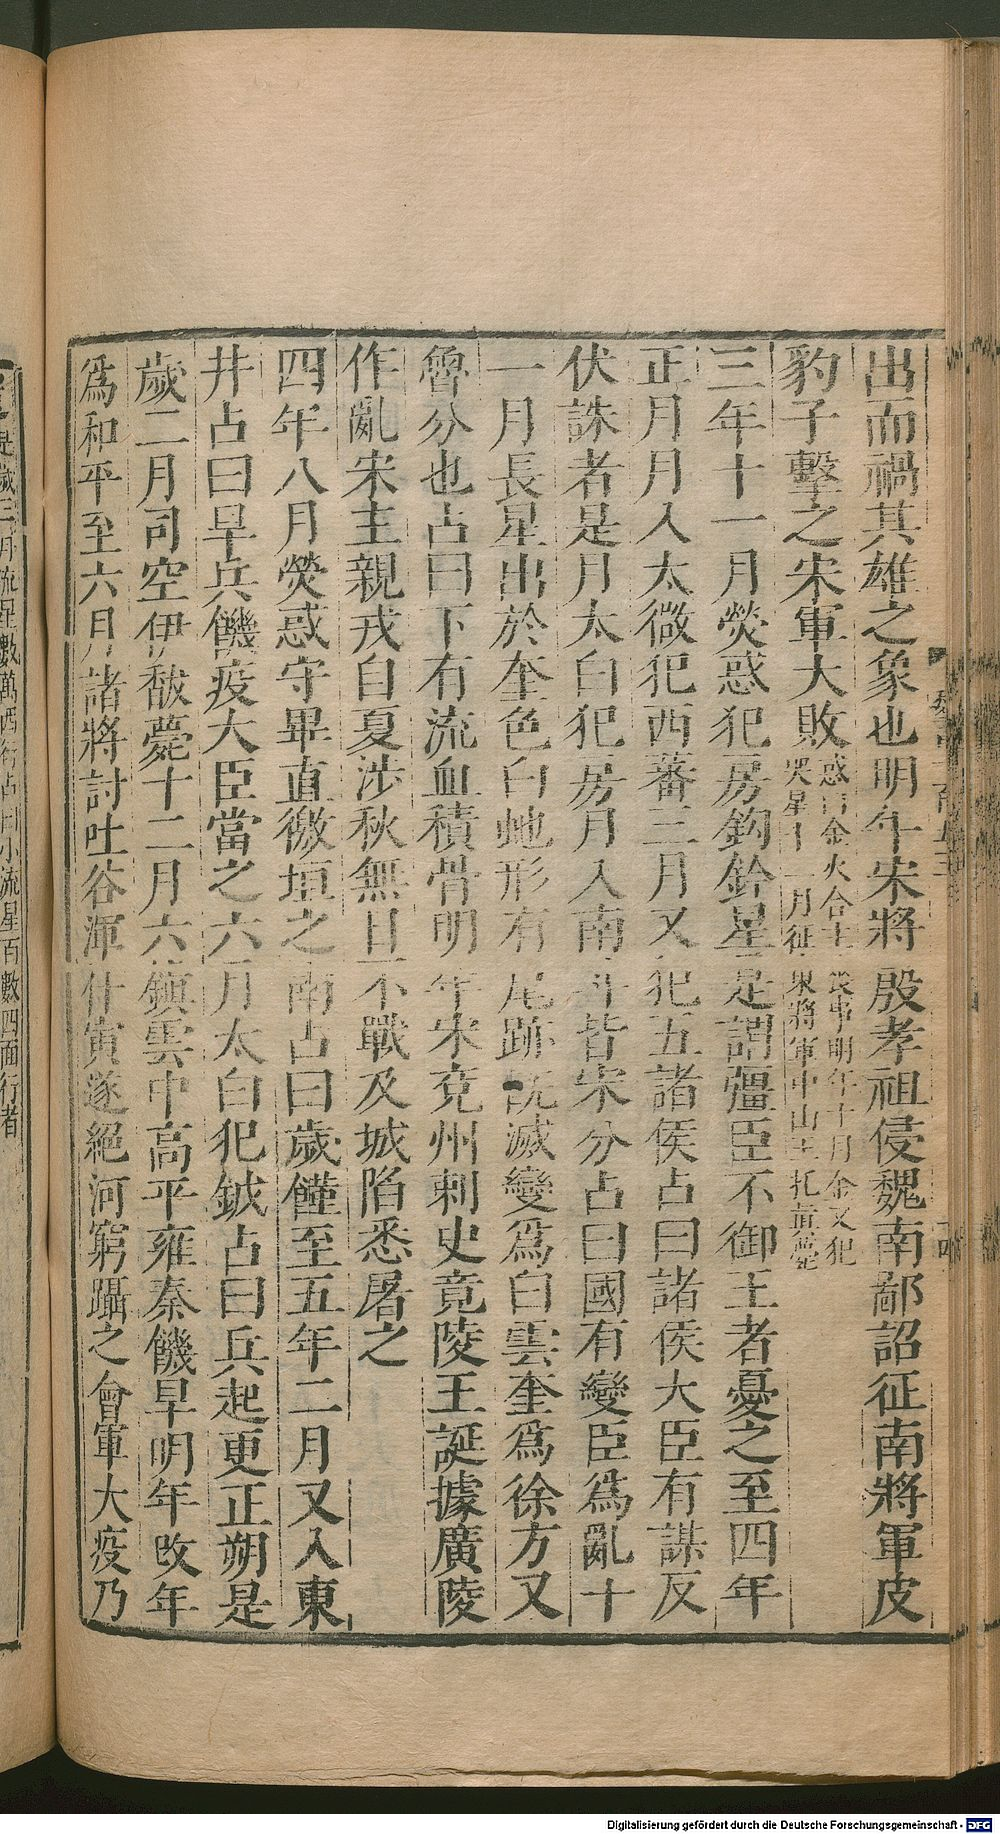 出而禍其雄之象也明年宋將殷孝祖侵魏南鄙詔征南將軍皮
豹子擊之宋軍大敗
惑曰金火合主喪事明年十月金又犯
哭星十一月征東將軍中山王托真薨
三年十一月熒惑犯房鈎鈐星是謂彊臣不御王者憂之至四年
正月月入太微犯西蕃三月又犯五諸侯占曰諸侯大臣有謀反
伏誅者是月太白犯房月入南斗皆宋分占曰國有變臣爲亂十
一月長星出於奎色白虵形有尾跡既滅變爲白雲奎爲徐方又
魯分也占曰下有流血積骨明年宋兖州刺史竟陵王誕據廣陵
作亂宋主親戎自夏涉秋無日不戰及城陷悉屠之
四年八月熒惑守畢直徼垣之南占曰歲饉至五年二月又入東
井占曰旱兵饑疫大臣當之六月太白犯鉞占曰兵起更正朔是
歲二月司空伊馛薨十二月六鎮雲中高平雍秦饑旱明年改年
爲和平至六月諸將討吐谷渾什寅遂絕河窮躡之會軍大疫乃
是歲三月流星數萬西行占曰小流星百數四面行者
Digitalisierung gefördert durch die Deutsche Forschungsgemeinschaft - DFG